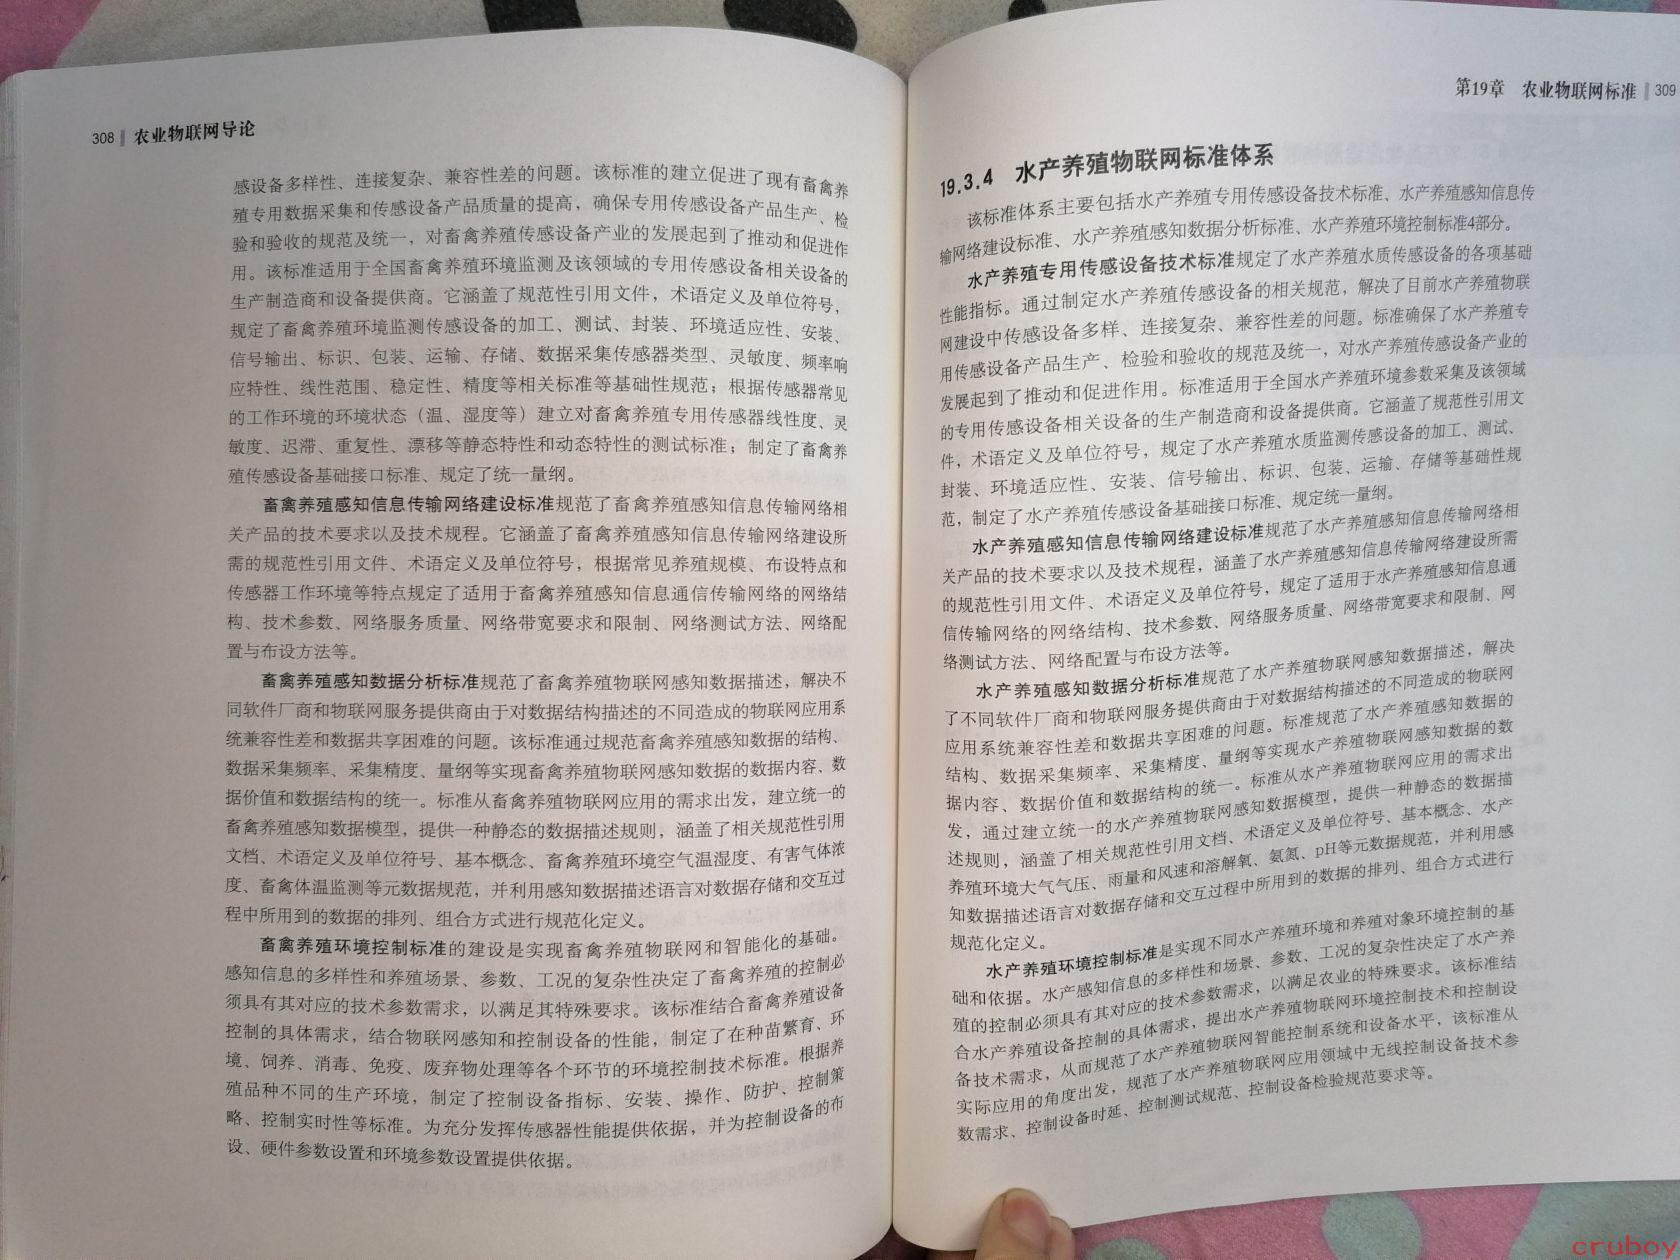 308 农业物联网导论
感设备多样性、连接复杂、兼容性差的问题。该标准的建立促进了现有畜禽养
殖专用数据采集和传感设备产品质量的提高，确保专用传感设备产品生产、检
验和验收的规范及统一，对畜禽养殖传感设备产业的发展起到了推动和促进作
用。该标准适用于全国畜禽养殖环境监测及该领域的专用传感设备相关设备的
生产制造商和设备提供商。它涵盖了规范性引用文件，术语定义及单位符号，
规定了畜禽养殖环境监测传感设备的加工、测试、封装、环境适应性、安装、
信号输出、标识、包装、运输、存储、数据采集传感器类型、灵敏度、频率响
应特性、线性范围、稳定性、精度等相关标准等基础性规范；根据传感器常见
的工作环境的环境状态（温、湿度等）建立对畜禽养殖专用传感器线性度、灵
敏度、迟滞、重复性、漂移等静态特性和动态特性的测试标准；制定了畜禽养
殖传感设备基础接口标准、规定了统一量纲。
畜禽养殖感知信息传输网络建设标准规范了畜禽养殖感知信息传输网络相
关产品的技术要求以及技术规程。它涵盖了畜禽养殖感知信息传输网络建设所
需的规范性引用文件、术语定义及单位符号，根据常见养殖规模、布设特点和
传感器工作环境等特点规定了适用于畜禽养殖感知信息通信传输网络的网络结
构、技术参数、网络服务质量、网络带宽要求和限制、网络测试方法、网络配
置与布设方法等。
畜禽养殖感知数据分析标准规范了畜禽养殖物联网感知数据描述，解决不
同软件厂商和物联网服务提供商由于对数据结构描述的不同造成的物联网应用系
统兼容性差和数据共享困难的问题。该标准通过规范畜禽养殖感知数据的结构、
数据采集频率、采集精度、量纲等实现畜禽养殖物联网感知数据的数据内容、数
据价值和数据结构的统一。标准从畜禽养殖物联网应用的需求出发，建立统一的
畜禽养殖感知数据模型，提供一种静态的数据描述规则，涵盖了相关规范性引用
文档、术语定义及单位符号、基本概念、畜禽养殖环境空气温湿度、有害气体浓
度、畜禽体温监测等元数据规范，并利用感知数据描述语言对数据存储和交互过
程中所用到的数据的排列、组合方式进行规范化定义。
畜禽养殖环境控制标准的建设是实现畜禽养殖物联网和智能化的基础。
感知信息的多样性和养殖场景、参数、工况的复杂性决定了畜禽养殖的控制必
须具有其对应的技术参数需求，以满足其特殊要求。该标准结合畜禽养殖设备
控制的具体需求，结合物联网感知和控制设备的性能，制定了在种苗繁育、环
境、饲养、消毒、免疫、废弃物处理等各个环节的环境控制技术标准。根据养
殖品种不同的生产环境，制定了控制设备指标、安装、操作、防护、控制策
略、控制实时性等标准。为充分发挥传感器性能提供依据，并为控制设备的布
设、硬件参数设置和环境参数设置提供依据。
第19章 农业物联网标准 309
19.3.4 水产养殖物联网标准体系
该标准体系主要包括水产养殖专用传感设备技术标准、水产养殖感知信息传
输网络建设标准、水产养殖感知数据分析标准、水产养殖环境控制标准4部分。
水产养殖专用传感设备技术标准规定了水产养殖水质传感设备的各项基础
性能指标。通过制定水产养殖传感设备的相关规范，解决了目前水产养殖物联
网建设中传感设备多样、连接复杂、兼容性差的问题。标准确保了水产养殖专
用传感设备产品生产、检验和验收的规范及统一，对水产养殖传感设备产业的
发展起到了推动和促进作用。标准适用于全国水产养殖环境参数采集及该领域
的专用传感设备相关设备的生产制造商和设备提供商。它涵盖了规范性引用文
件，术语定义及单位符号，规定了水产养殖水质监测传感设备的加工、测试、
封装、环境适应性、安装、信号输出、标识、包装、运输、存储等基础性规
范，制定了水产养殖传感设备基础接口标准、规定统一量纲。
水产养殖感知信息传输网络建设标准规范了水产养殖感知信息传输网络相
关产品的技术要求以及技术规程，涵盖了水产养殖感知信息传输网络建设所需
的规范性引用文件、术语定义及单位符号，规定了适用于水产养殖感知信息通
信传输网络的网络结构、技术参数、网络服务质量、网络带宽要求和限制、网
络测试方法、网络配置与布设方法等。
水产养殖感知数据分析标准规范了水产养殖物联网感知数据描述，解决
了不同软件厂商和物联网服务提供商由于对数据结构描述的不同造成的物联网
应用系统兼容性差和数据共享困难的问题。标准规范了水产养殖感知数据的
结构、数据采集频率、采集精度、量纲等实现水产养殖物联网感知数据的数
据内容、数据价值和数据结构的统一。标准从水产养殖物联网应用的需求出
发，通过建立统一的水产养殖物联网感知数据模型，提供一种静态的数据描
述规则，涵盖了相关规范性引用文档、术语定义及单位符号、基本概念、水产
养殖环境大气气压、雨量和风速和溶解氧、氨氮、pH等元数据规范，并利用感
知数据描述语言对数据存储和交互过程中所用到的数据的排列、组合方式进行
规范化定义。
水产养殖环境控制标准是实现不同水产养殖环境和养殖对象环境控制的基
础和依据。水产感知信息的多样性和场景、参数、工况的复杂性决定了水产养
殖的控制必须具有其对应的技术参数需求，以满足农业的特殊要求。该标准结
合水产养殖设备控制的具体需求，提出水产养殖物联网环境控制技术和控制设
备技术需求，从而规范了水产养殖物联网智能控制系统和设备水平，该标准从
实际应用的角度出发，规范了水产养殖物联网应用领域中无线控制设备技术参
数需求、控制设备时延、控制测试规范、控制设备检验规范要求等。
cruboy